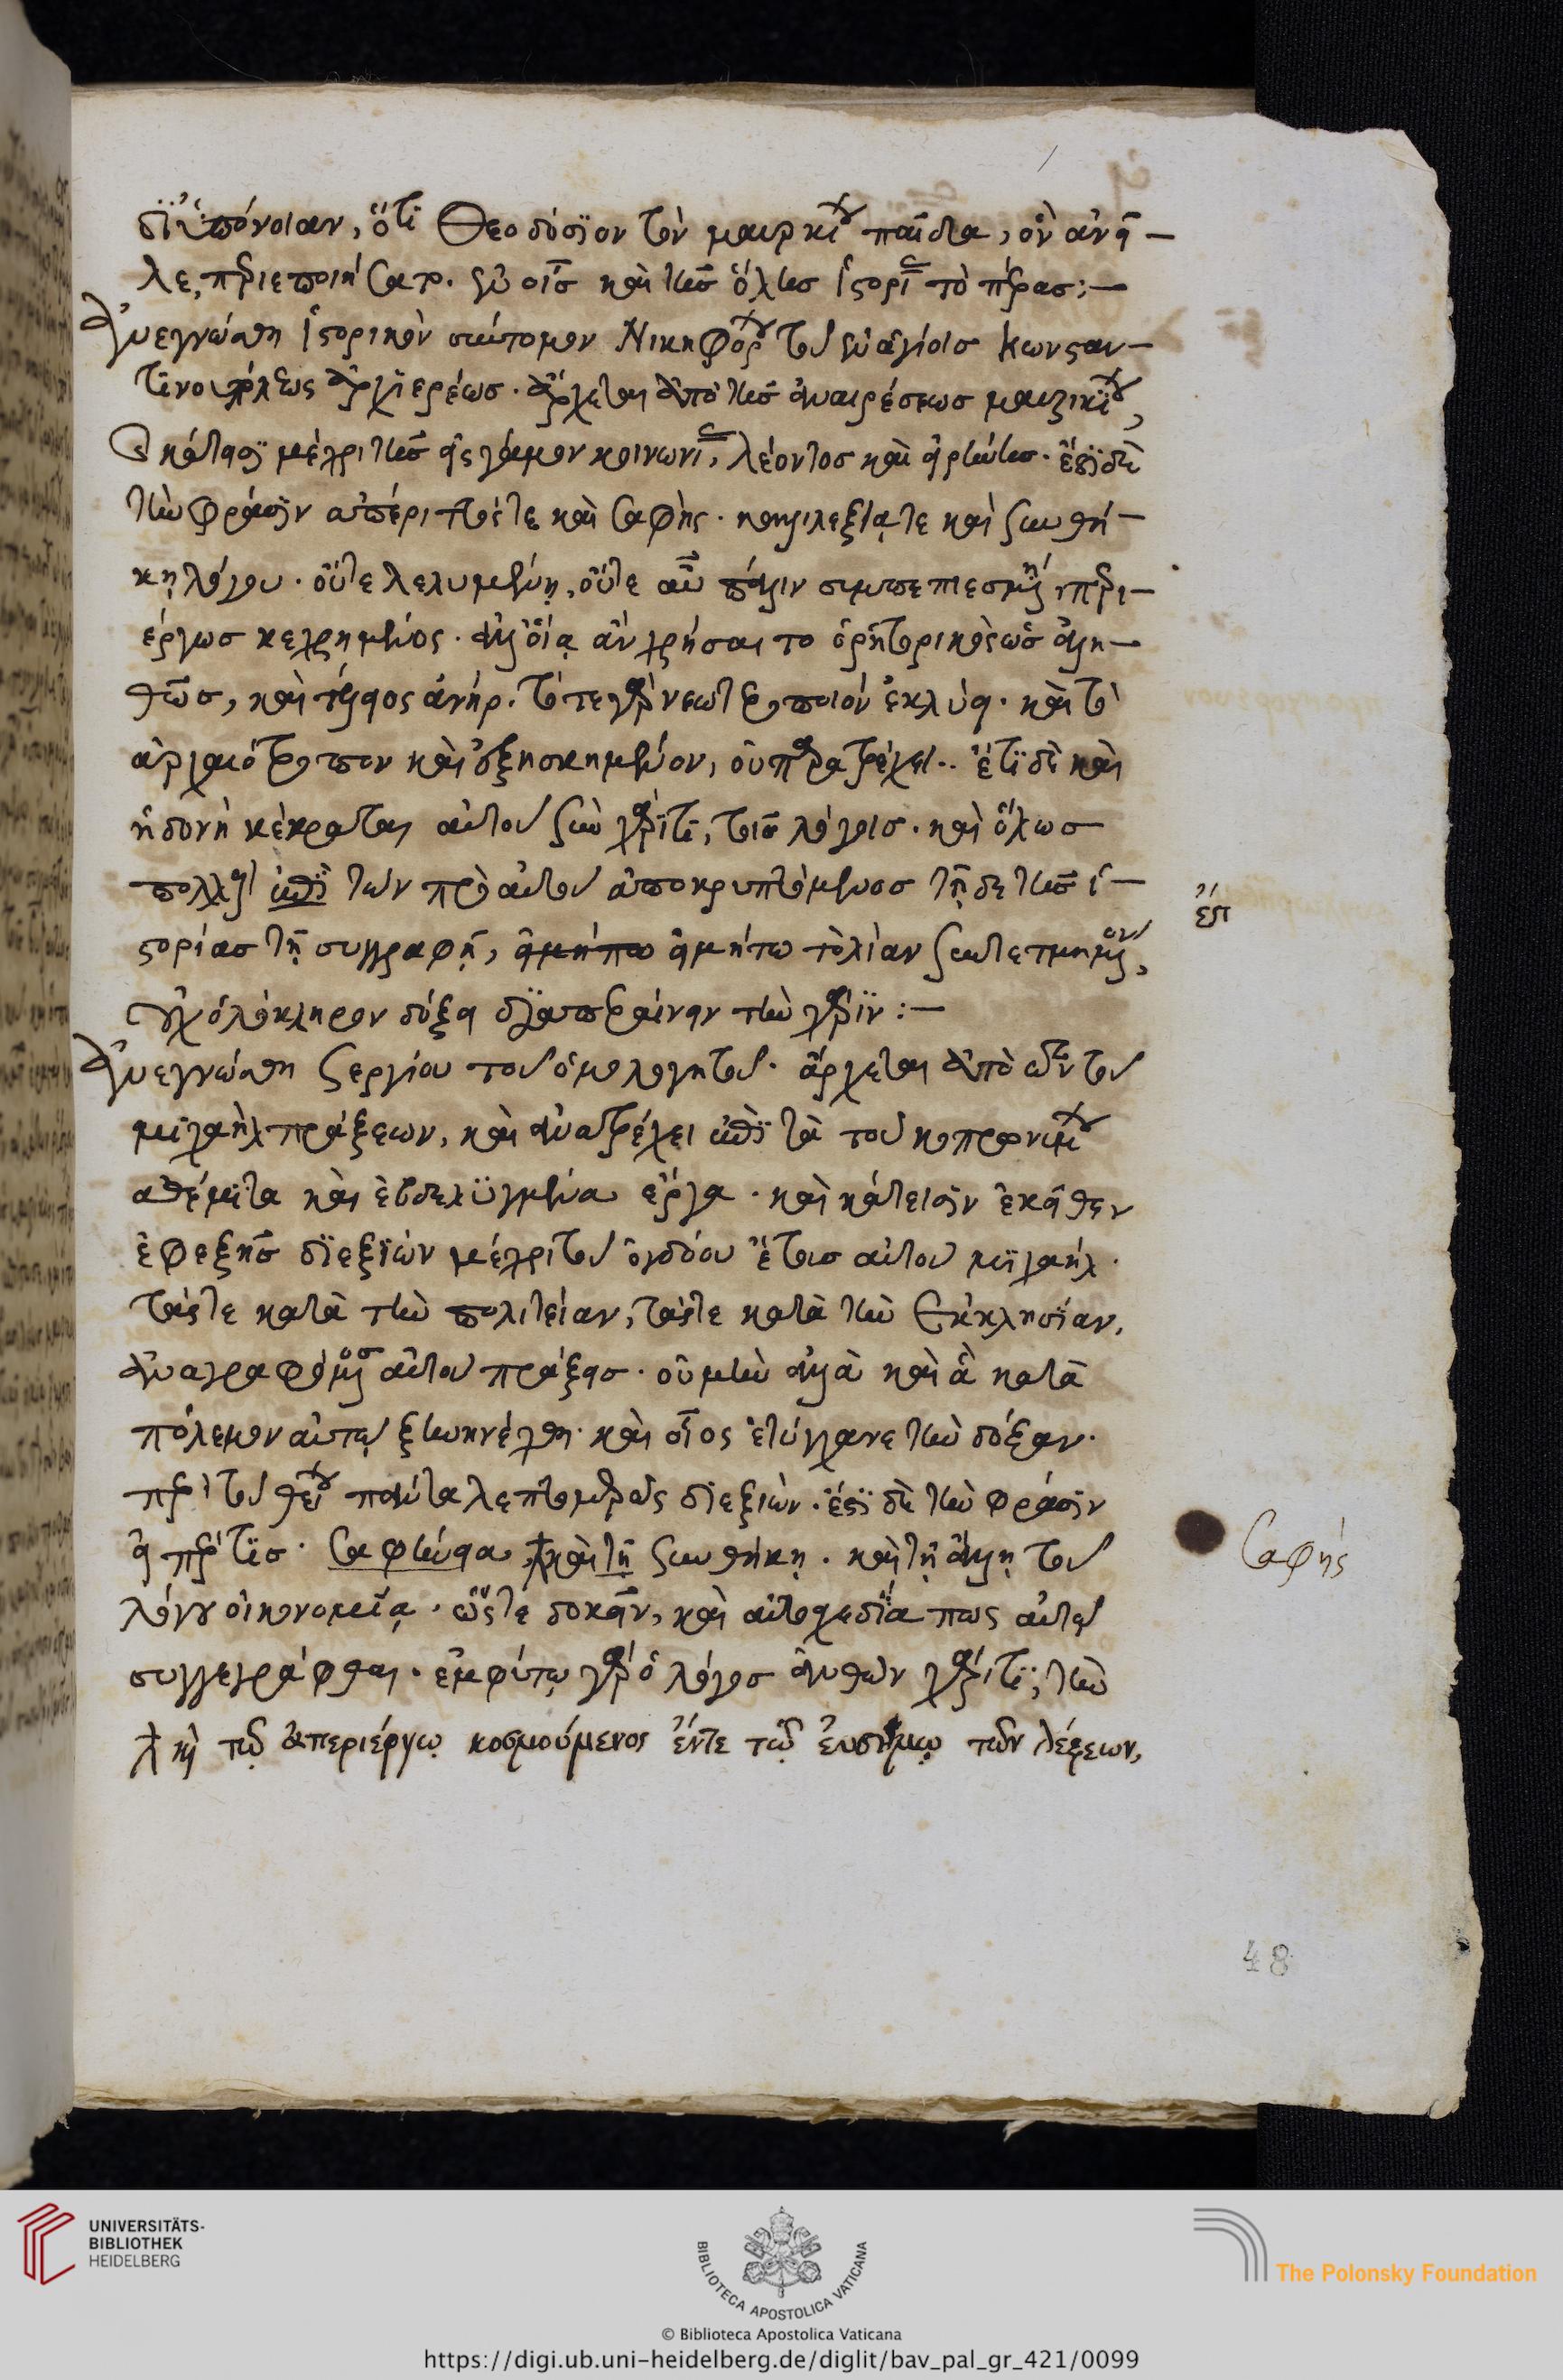 δι' ὑπόνοιαν, ὅτι Θεοδόσιον τὸν μαυρικίου παῖδα, ὃν ἀνεῖ—
λε, περιεποιήσατο. ἐν οἷς καὶ τῆς ὅλης ἱστορίας τὸ πέρας:—
Ἀνεγνώσθη ἱστορικὸν σύντομον Νικηφόρου τοῦ ἐν ἁγίοις Κωνσταν—
τινουπόλεως ἀρχιερέως. ἄρχεται ἀπὸ τῆς ἀναιρέσεως μαυρικίου,
κάτεισι μέχρι τῆς εἰς γάμον κοινωνίας, λέοντος καὶ εἰρήνης. ἔστι δὲ
τὴν φράσιν ἀπέριττός τε καὶ σαφὴς. καλλιλεξίᾳ τε καὶ συνθή—
κῃ λόγου. οὔτε λελυμένῃ, οὔτε αὖ πάλιν συμπεπιεσμένῃ, περι—
έργως κεχρημένος. ἀλλ' οἵᾳ ἂν χρήσαιτο ὁ ῥητορικὸς ὡς ἀλη—
θῶς, καὶ τέλειος ἀνήρ. τό τε γὰρ νεωτεροποιὸν ἐκκλίνει. καὶ τὸ
ἀρχαιότροπον καὶ ἐξησκημένον, οὐ παρατρέχει. ἔτι δὲ καὶ
ἡδονὴ κέκραται αὐτοῦ σὺν χάριτι, τοῖς λόγοις. καὶ ὅλως
πολλοὺς ἐπὶ τῶν πρὸ αὐτοῦ ἀποκρυπτόμενος τῇδε τῆς ἱ—
στορίας τῇ συγγραφῇ, εἰ μή πω εἰ μή τω τὸ λίαν συντετμημένον,
οὐχ ὁλόκληρον δόξει διαπεραίνειν τὴν χάριν:—
Ἀνεγνώσθη Σεργίου τοῦ ὁμολογητοῦ. ἄρχεται ἀπὸ τῶν τοῦ
μιχαὴλ πράξεων, καὶ ἀνατρέχει ἐπὶ τὰ τοῦ κοπρωνύμου
ἀθέμιτα καὶ ἐβδελυγμένα ἔργα. καὶ κάτεισιν ἐκεῖθεν
ἐφεξῆς διεξιὼν μέχρι τοῦ ὀγδόου ἔτους αὐτοῦ μιχαήλ.
τάς τε κατὰ τὴν πολιτείαν, τάς τε κατὰ τὴν Ἐκκλησίαν,
ἀναγραφόμενος αὐτοῦ πράξεις. οὐ μὴν ἀλλὰ καὶ ἃ κατὰ
πόλεμον αὐτῷ ξυνηνέχθη. καὶ οἷος ἐτύγχανε τὴν δόξαν.
περὶ τοῦ θείου ταῦτα λεπτομερῶς διεξιών. ἔστι δὲ τὴν φράσιν
εἴπερ τις. σαφηνείᾳ, καὶ τῇ συνθήκῃ. καὶ τῇ ἄλλῃ τοῦ
λόγου οἰκονομίᾳ. ὥστε δοκεῖν, καὶ αὐτοσχεδίᾳ πως αὐτῷ
συγγεγράφθαι. ἐμφύτῳ γὰρ ὁ λόγος ἀνθῶν χάριτι, τὴν
καὶ τῷ ἀπεριέργῳ κοσμούμενος ἔν τε τῷ ἐνσήμῳ τῶν λέξεων,
ἐπ
Σαφὴς
48
UNIVERSITÄTS-
BIBLIOTHEK
HEIDELBERG
BIBLIOTECA APOSTOLICA VATICANA
The Polonsky Foundation
© Biblioteca Apostolica Vaticana
https://digi.ub.uni-heidelberg.de/diglit/bav_pal_gr_421/0099